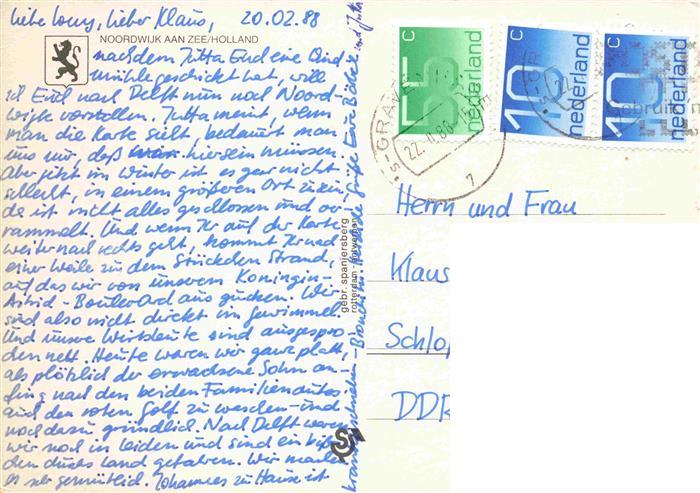 Liebe Lony, lieber Klaus, 20.02.88
NOORDWIJK AAN ZEE/HOLLAND
nachdem Jutta Euch eine Wind
mühle geschickt hat, will
ich Euch nach Delft nun noch Noord-
wijk vorstellen. Jutta meint, wenn
man die Karte sieht, bedauert man
uns nur, daß wir hier sein müssen.
Aber jetzt im Winter ist es gar nicht
schlecht, in einem größeren Ort zu sein
da ist nicht alles geschlossen und ver
rammelt. Und wenn Ihr auf der Karte
weiter nach rechts geht, kommt Ihr nach
einer Weile zu dem Stückchen Strand,
auf das wir von unserem Koningin-
Astrid-Boulevard aus gucken. Wir
sind also nicht direkt im Gewimmel
Und unsere Wirtsleute sind ausgespro
chen nett. Heute waren wir ganz platt,
als plötzlich der erwachsene Sohn an-
fing nach den beiden Familienautos
auch den roten Golf zu waschen - und
noch dazu gründlich. Nach Delft waren
wir noch in Leiden und sind ein biß
chen durchs Land gefahren. Wir machen
es sehr gemütlich. Johannes zu Hause ist
krankgeschrieben - Bronchitis. Herzliche Grüße Eure Bärbel und Jutta
gebr. spanjersberg
rotterdam - antwerpen
55 c nederland
10 c nederland
10 c nederland
'S-GRAVEN
22.II.88
7
Herrn und Frau
Klaus
Schlo
DDR